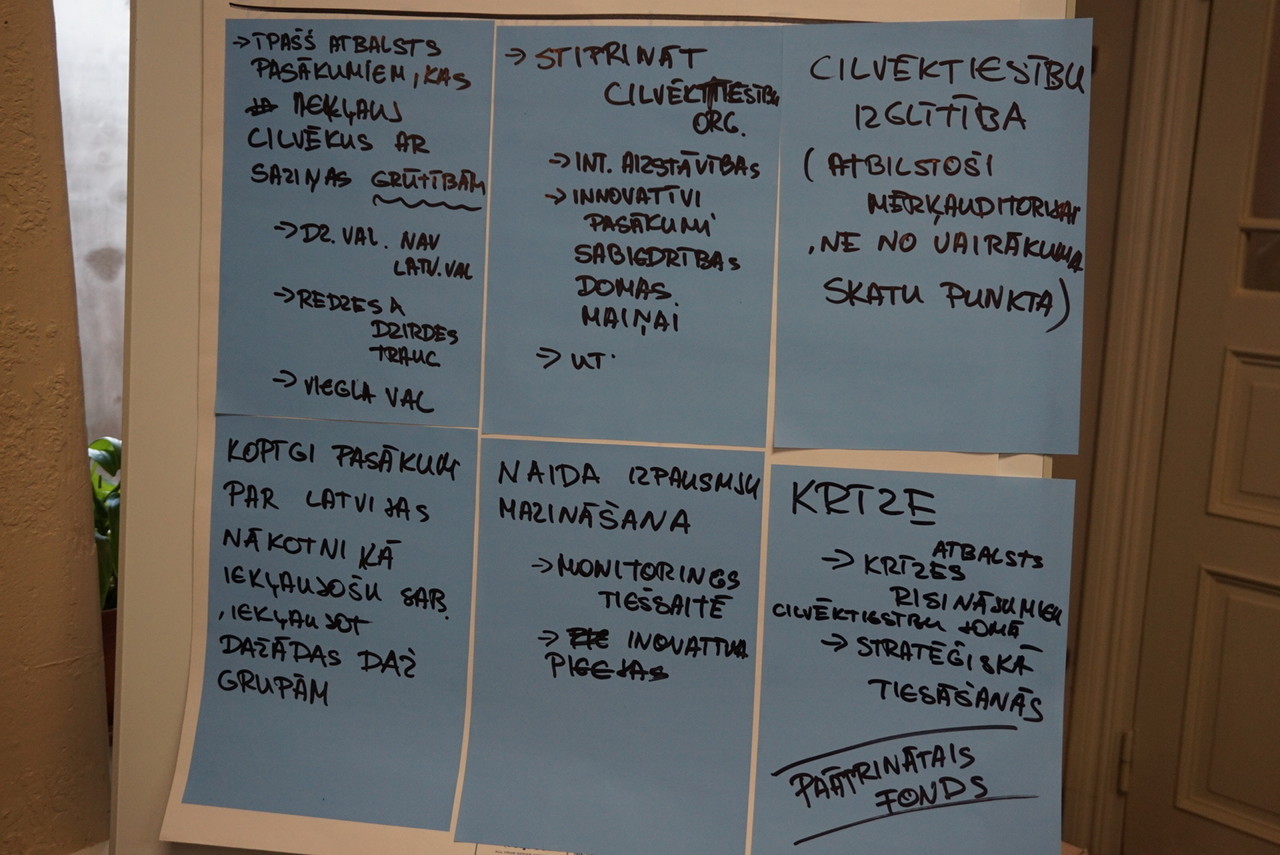 → ĪPAŠŠ ATBALSTS
PASĀKUMIEM, KAS
IEKĻAUJ
CILVĒKUS AR
SAZIŅAS GRŪTĪBĀM
→ DZ. VAL. NAV
LATV. VAL
→ REDZES A
DZIRDES
TRAUC
→ VIEGLA VAL
→ STIPRINĀT
CILVĒKTIESĪBU
ORG.
→ INT. AIZSTĀVĪBAS
→ INNOVATĪVI
PASĀKUMI
SABIEDRĪBAS
DOMAS
MAIŅAI
→ UT.
CILVĒKTIESĪBU
IZGLĪTĪBA
( ATBILSTOŠI
MĒRĶAUDITORIJAI
, NE NO VAIRĀKUMA
SKATU PUNKTA )
KOPĪGI PASĀKUMI
PAR LATVIJAS
NĀKOTNI KĀ
IEKĻAUJOŠU SAB.
, IEKĻAUJOT
DAŽĀDAS DAŽ
GRUPĀM
NAIDA IZPAUSMJU
MAZINĀŠANA
→ MONITORINGS
TIEŠSAITĒ
→ INOVATĪVA
PIEEJAS
KRĪZE
ATBALSTS
→ KRĪZES
RISINĀJUMIEM
CILVĒKTIESĪBU JOMĀ
→ STRATĒĢISKĀ
TIESĀŠANĀS
PAĀTRINĀTAIS
FONDS